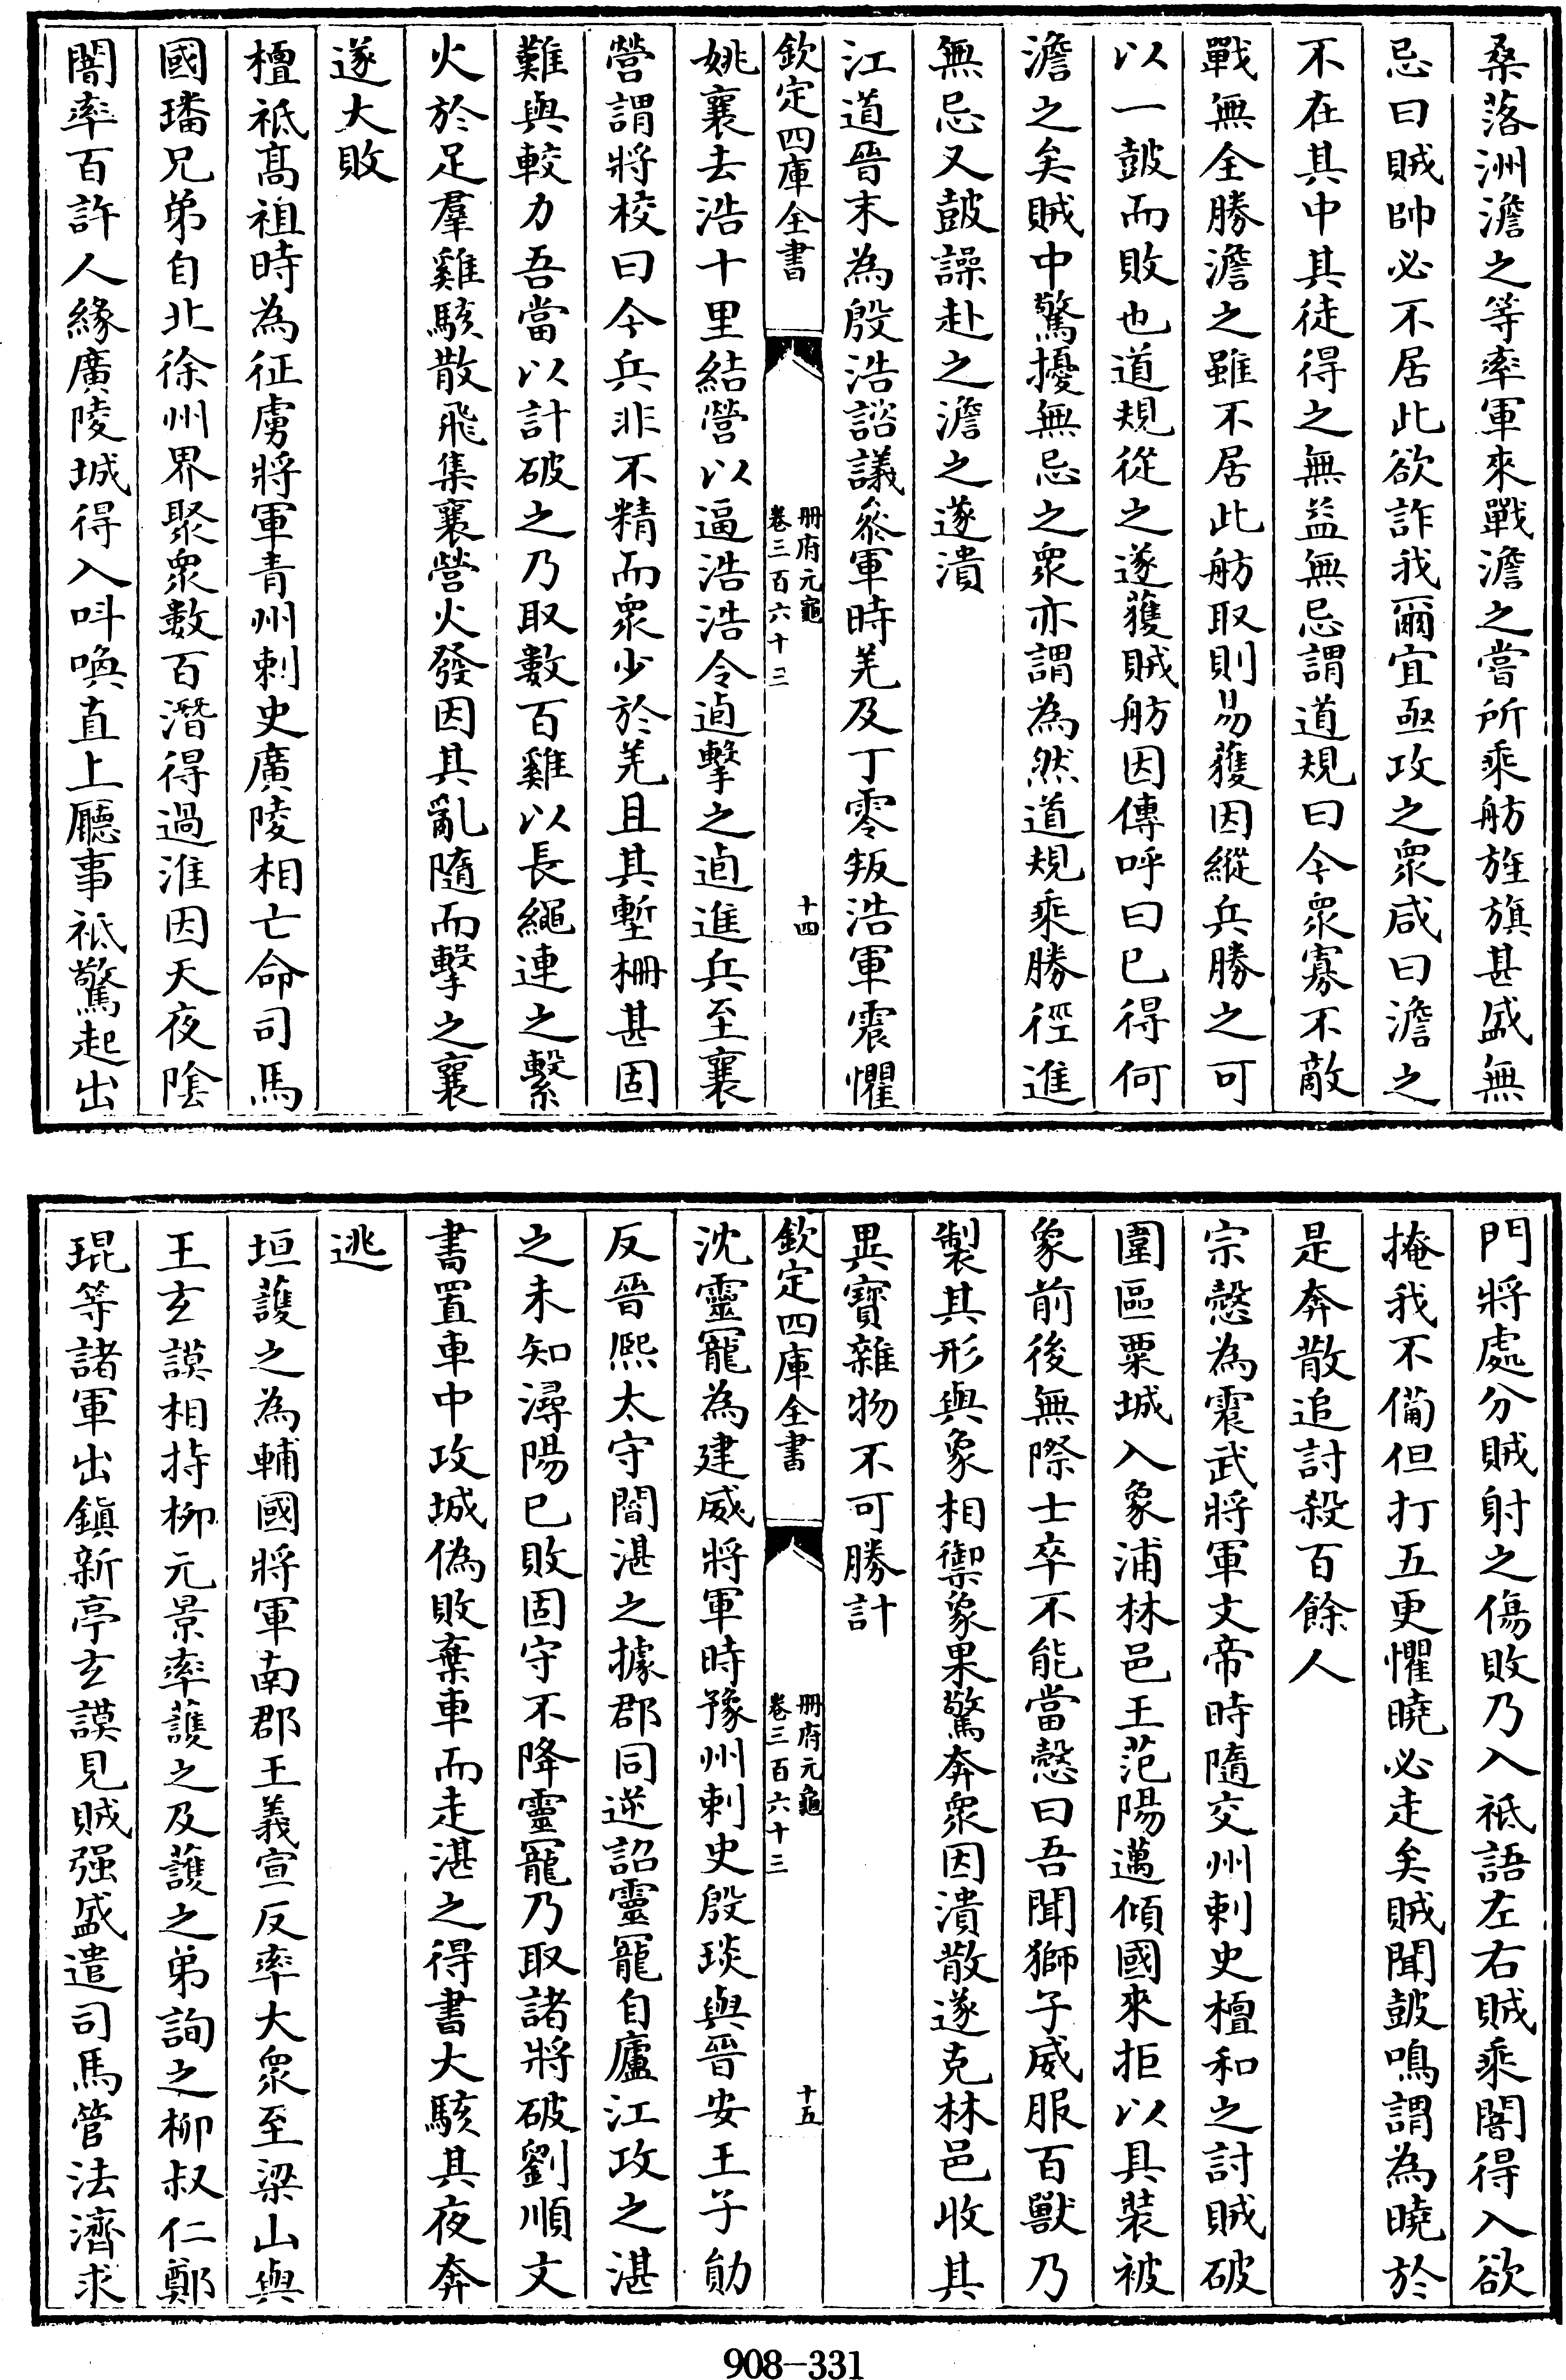 桑落洲澹之等率軍來戰澹之嘗所乗舫旌旗甚盛無
忌曰賊帥必不居此欲詐我爾宜亟攻之衆咸曰澹之
不在其中其徒得之無益無忌謂道規曰今衆寡不敵
戰無全勝澹之雖不居此舫取則易獲因縱兵勝之可
以一鼓而敗也道規從之遂獲賊舫因傳呼曰已得何
澹之矣賊中驚擾無忌之衆亦謂為然道規乗勝徑進
無忌又鼓譟赴之澹之遂潰
江逌晉末為殷浩諮議叅軍時羌及丁零叛浩軍震懼
欽定四庫全書
冊府元龜
卷三百六十三
十四
姚襄去浩十里結營以逼浩浩令逌擊之逌進兵至襄
營謂將校曰今兵非不精而衆少於羌且其塹栅甚固
難與較力吾當以計破之乃取數百雞以長繩連之繫
火於足羣雞駭散飛集襄營火發因其亂隨而擊之襄
遂大敗
檀祗髙祖時為征虜將軍青州刺史廣陵相亡命司馬
國璠兄弟自北徐州界聚衆數百潛得過淮因天夜陰
闇率百許人緣廣陵城得入呌喚直上廳事祗驚起出
門將處分賊射之傷敗乃入祗語左右賊乗闇得入欲
掩我不備但打五更懼曉必走矣賊聞鼓鳴謂為曉於
是奔散追討殺百餘人
宗慤為震武將軍文帝時隨交州刺史檀和之討賊破
圍區粟城入象浦林邑王范陽邁傾國來拒以具裝被
象前後無際士卒不能當慤曰吾聞獅子威服百獸乃
製其形與象相禦象果驚奔衆因潰散遂克林邑收其
異寳雜物不可勝計
欽定四庫全書
冊府元龜
卷三百六十三
十五
沈靈寵為建威將軍時豫州刺史殷琰與晉安王子勛
反晉熙太守閻湛之據郡同逆詔靈寵自廬江攻之湛
之未知潯陽已敗固守不降靈寵乃取諸將破劉順文
書置車中攻城偽敗棄車而走湛之得書大駭其夜奔
逃
垣護之為輔國將軍南郡王義宣反率大衆至梁山與
王玄謨相持柳元景率護之及護之弟詢之柳叔仁鄭
琨等諸軍出鎮新亭玄謨見賊强盛遣司馬管法濟求
908-331